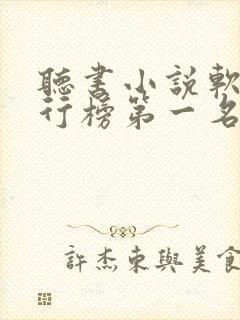 聽書小說軟
行榜第一名
許杰東與美食